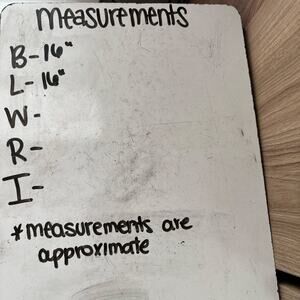 measurements
B-16"
L-16"
W-
R-
I-
*measurements are
approximate